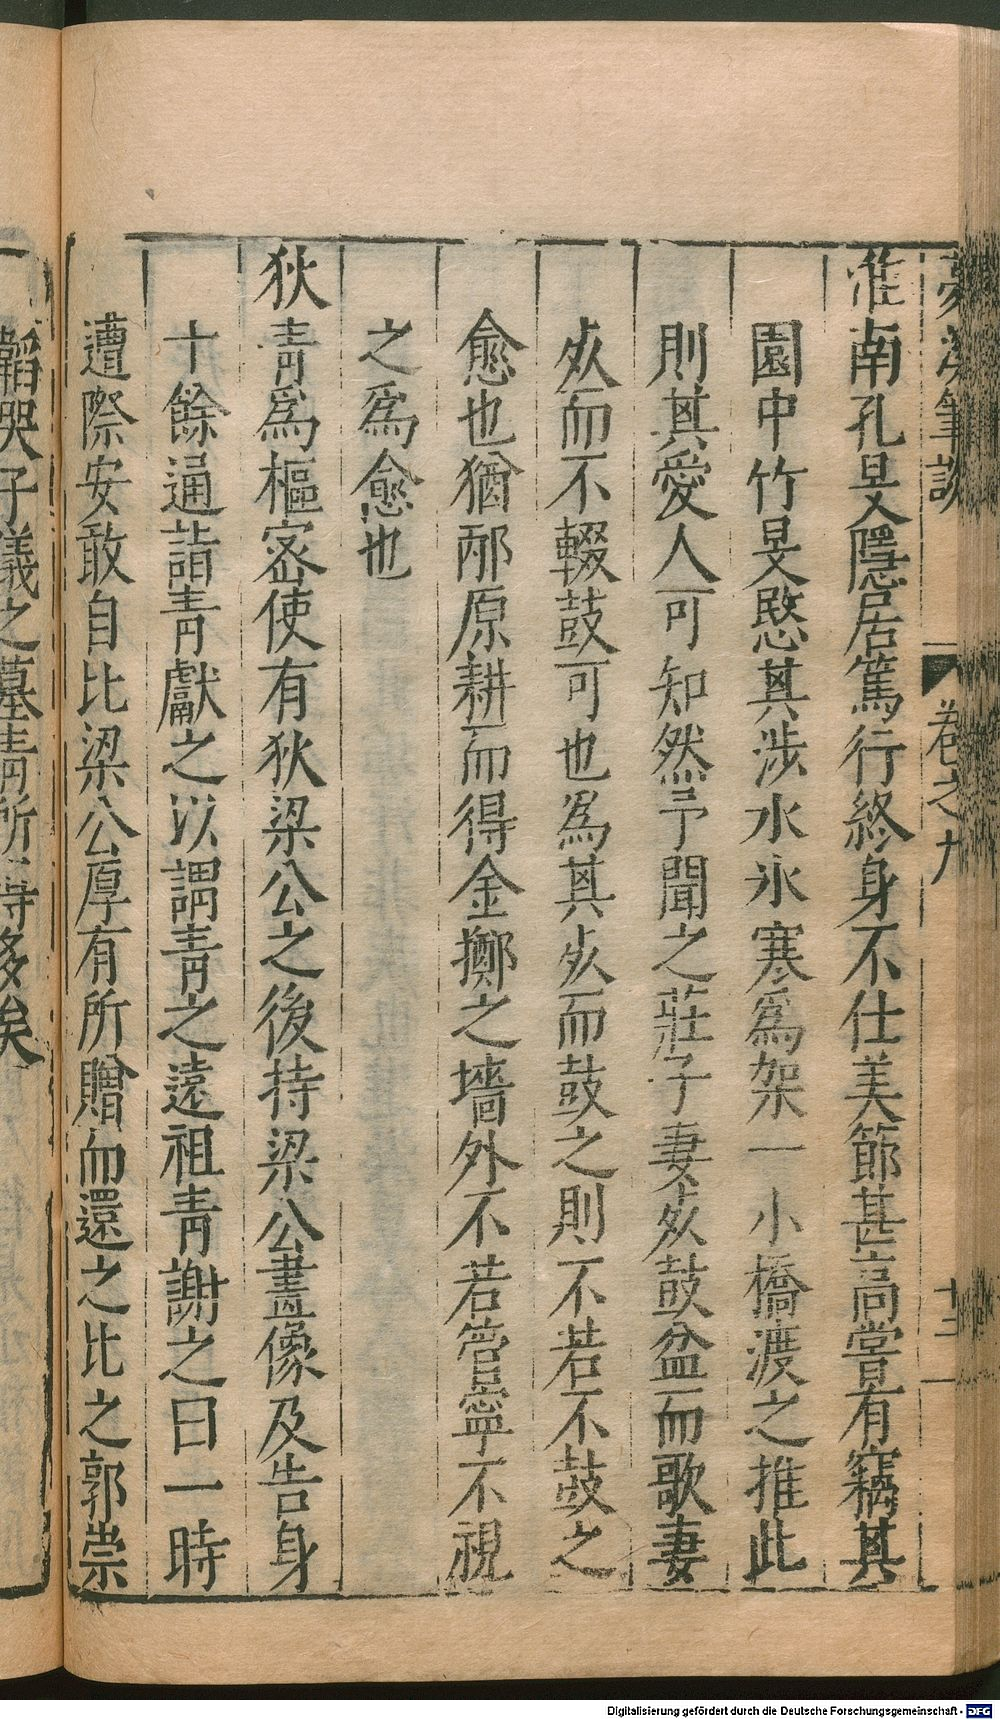 夢溪筆談 卷之九 十三
淮南孔旻隱居篤行終身不仕美節甚高嘗有竊其
園中竹旻愍其涉水氷寒爲架一小橋渡之推此
則其愛人可知然予聞之莊子妻死鼓盆而歌妻
死而不輟鼓可也爲其死而鼓之則不若不鼓之
愈也猶邴原耕而得金擲之墻外不若管寧不視
之爲愈也
狄青爲樞密使有狄梁公之後持梁公畫像及告身
十餘通詣青獻之以謂青之遠祖青謝之曰一時
遭際安敢自比梁公厚有所贈而還之比之郭崇
韜哭子儀之墓青所得多矣
Digitalisierung gefördert durch die Deutsche Forschungsgemeinschaft - DFG